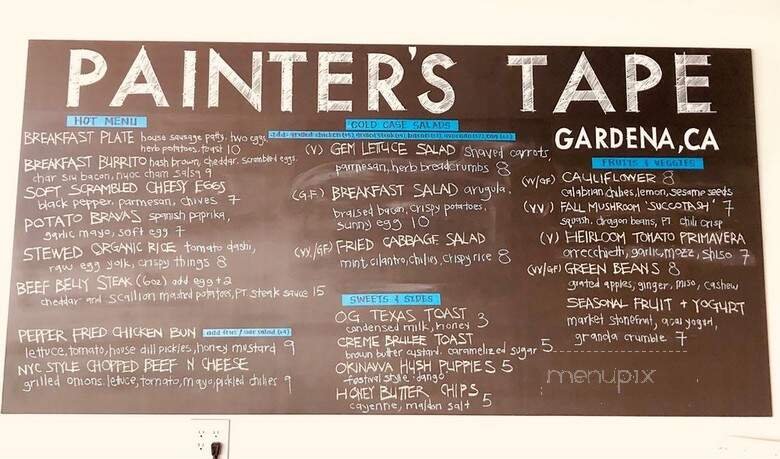 PAINTER'S TAPE
GARDENA, CA
HOT MENU
BREAKFAST PLATE house sausage patty, two eggs
herb potatoes, toast 10
BREAKFAST BURRITO hash brown, cheddar, scrambled eggs,
char siu bacon, nuoc cham salsa 9
SOFT SCRAMBLED CHEESY EGGS
black pepper, parmesan, chives 7
POTATO BRAVAS spanish paprika,
garlic mayo, soft egg 7
STEWED ORGANIC RICE tomato dashi,
raw egg yolk, crispy things 8
BEEF BELLY STEAK (6oz) add egg +2
cheddar and scallion mashed potatoes, PT steak sauce 15
PEPPER FRIED CHICKEN BUN add fries / side salad (+4)
lettuce, tomato, house dill pickles, honey mustard 9
NYC STYLE CHOPPED BEEF N CHEESE
grilled onions, lettuce, tomato, mayo, pickled chilies 9
COLD CASE SALADS
add: grilled chicken
(V) GEM LETTUCE SALAD shaved carrots,
parmesan, herb breadcrumbs 8
(G.F) BREAKFAST SALAD arugula,
braised bacon, crispy potatoes,
sunny egg 10
(VV/GF) FRIED CABBAGE SALAD
mint, cilantro, chilies, crispy rice 8
SWEETS & SIDES
OG TEXAS TOAST 3
condensed milk, honey
CREME BRULEE TOAST
brown butter custard, caramelized sugar 5
OKINAWA HUSH PUPPIES 5
festival style dango
HONEY BUTTER CHIPS 5
cayenne, maldon salt
FRUITS & VEGGIES
(VV/GF) CAULIFLOWER 8
calabrian chilies, lemon, sesame seeds
(VV) FALL MUSHROOM 'SUCCOTASH' 7
squash, dragon beans, PT chili crisp
(V) HEIRLOOM TOMATO PRIMAVERA
orrecchietti, garlic, mozz, shiso 7
(VV/GF) GREEN BEANS 8
grated apples, ginger, miso, cashew
SEASONAL FRUIT + YOGURT
market stonefruit, acai yogurt,
granola crumble 7
menupix